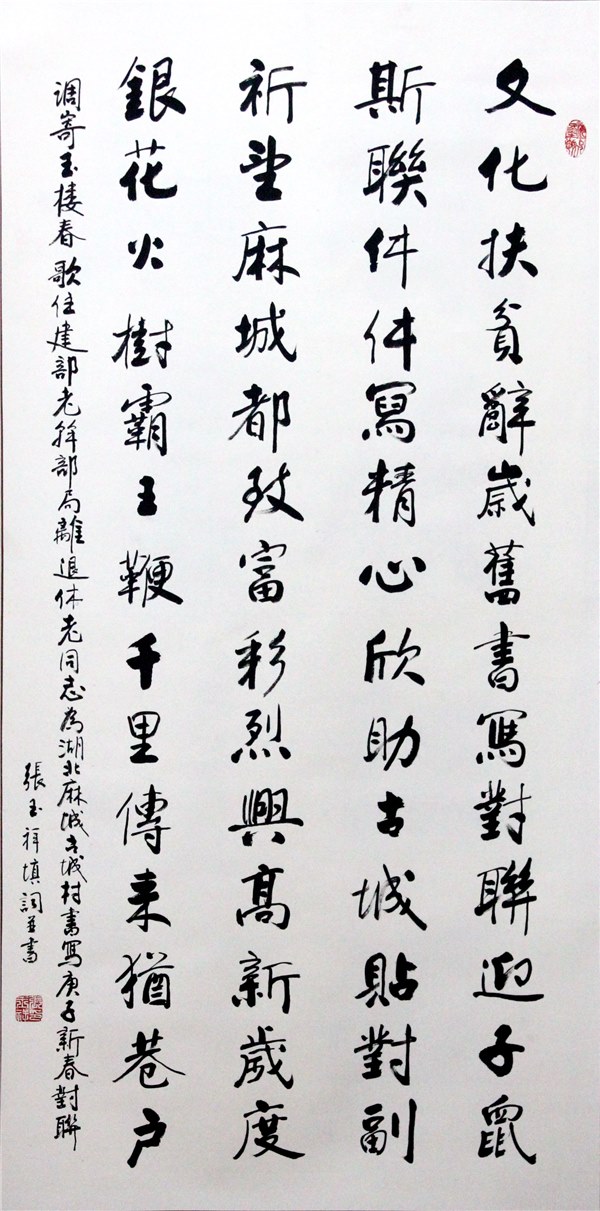 文化扶貧辭歲舊書寫對聯迎子鼠
斯聯件件寫精心欣助古城貼對副
祈望麻城都致富彩烈興高新歲度
銀花火樹霸王鞭千里傳来猶巷户
调寄玉楼春 歌住建部老幹部局離退休老同志為湖北麻城古城村書寫庚子新春對聯
張玉祥填詞並書